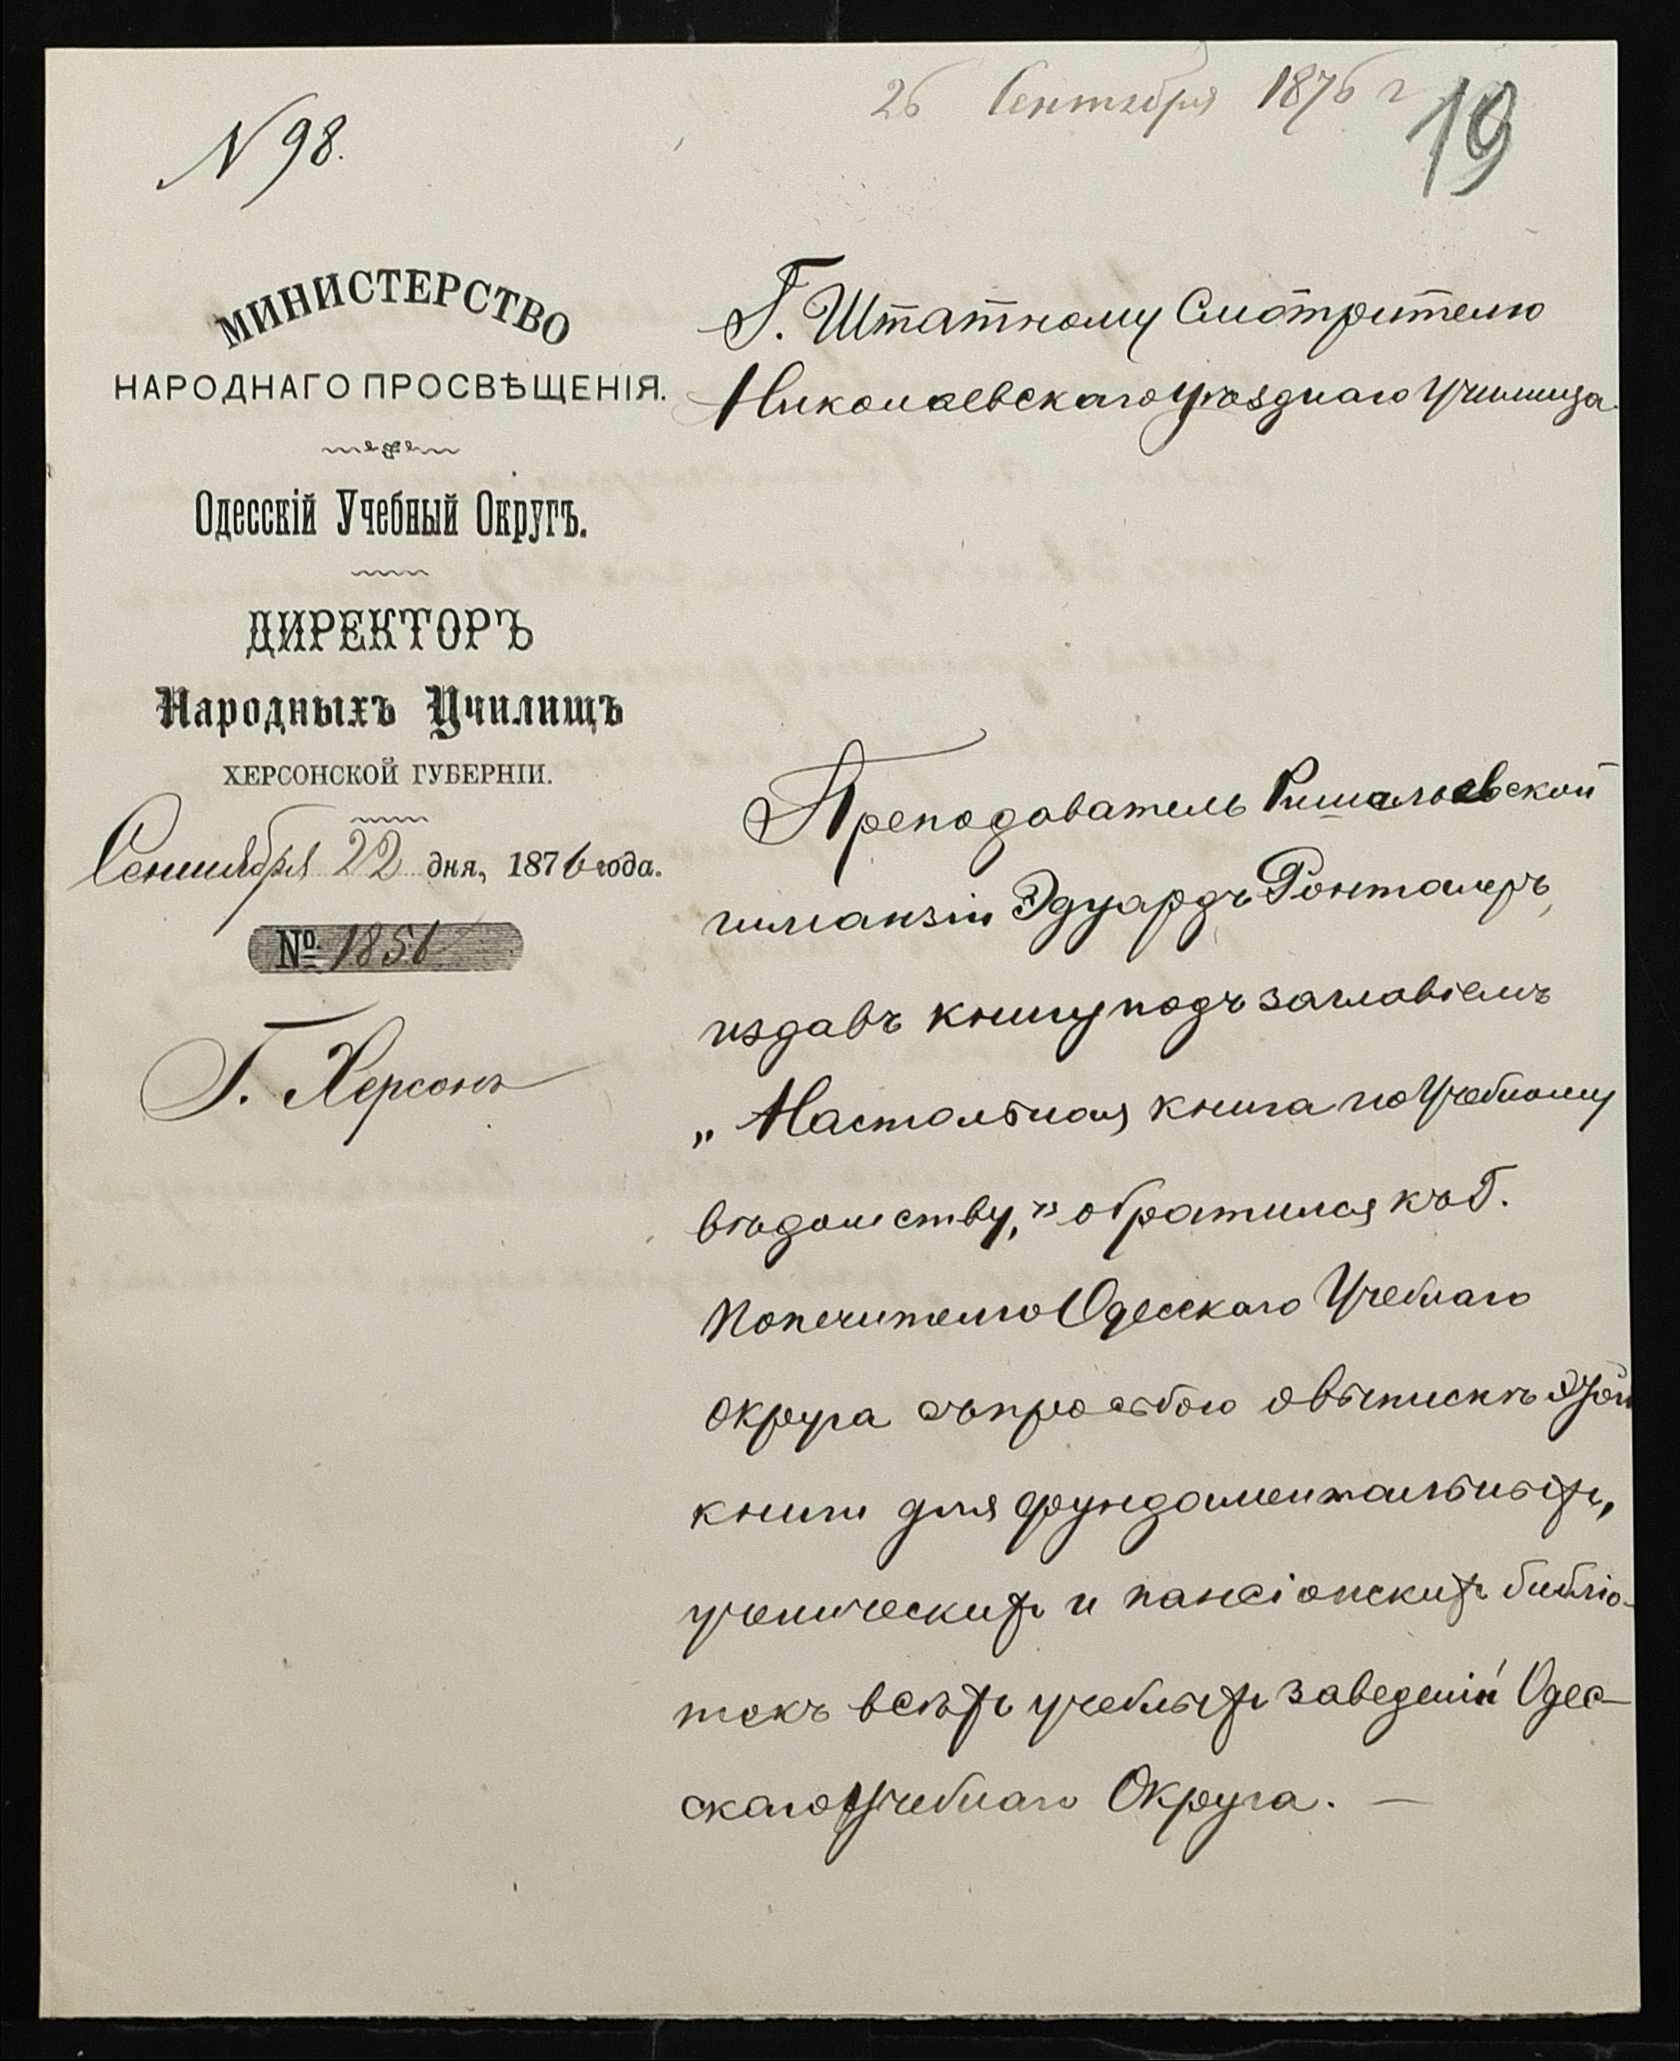 26 Сентября 1876 г
19
N 98.
МИНИСТЕРСТВО
НАРОДНАГО ПРОСВѢЩЕНІЯ.
Одесскій Учебный Округъ.
ДИРЕКТОРЪ
Народныхъ Училищъ
ХЕРСОНСКОЙ ГУБЕРНІИ.
Сентября 22 дня, 1876 года.
№ 1851
Г. Херсонъ
Г. Штатному Смотрителю
Николаевскаго уѣзднаго Училища.
Преподаватель Ришельевской
гимназіи Эдуардъ Гонталеръ,
издавъ книгу подъ заглавіемъ
„Настольная книга по Учебному
вѣдомству," обратился къ Г.
Попечителю Одесскаго Учебнаго
Округа съ просьбою о выпискѣ этой
книги для фундаментальныхъ,
ученическихъ и пансіонскихъ библіо-
текъ всѣхъ учебныхъ заведеній Одес-
скаго Учебнаго Округа. —